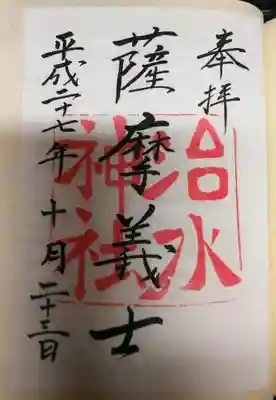 奉拝
治水
神社
薩摩義士
平成二十七年十月二十三日